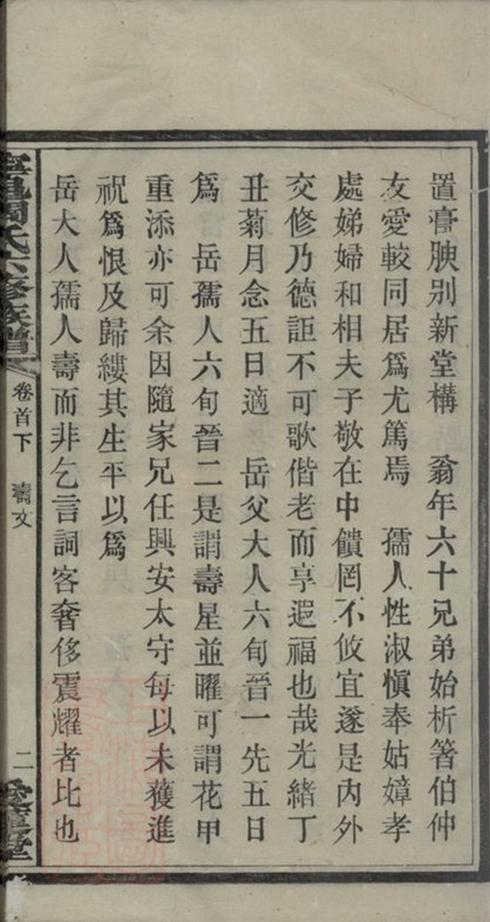 置膏腴别新堂構　翁年六十兄弟始析箸伯仲
友愛較同居爲尤篤焉　孺人性淑慎奉姑嫜孝
處娣婦和相夫子敬在中饋罔不攸宜遂是内外
交修乃德詎不可歌偕老而享遐福也哉光緒丁
丑菊月念五日適　岳父大人六旬晉一先五日
爲　岳孺人六旬晉二是謂壽星並曜可謂花甲
重添亦可余因隨家兄任興安太守每以未獲進
祝爲恨及歸縷其生平以爲
岳大人孺人壽而非乞言詞客奢侈震耀者比也
周氏六修族譜
卷首下　壽文
二
堂